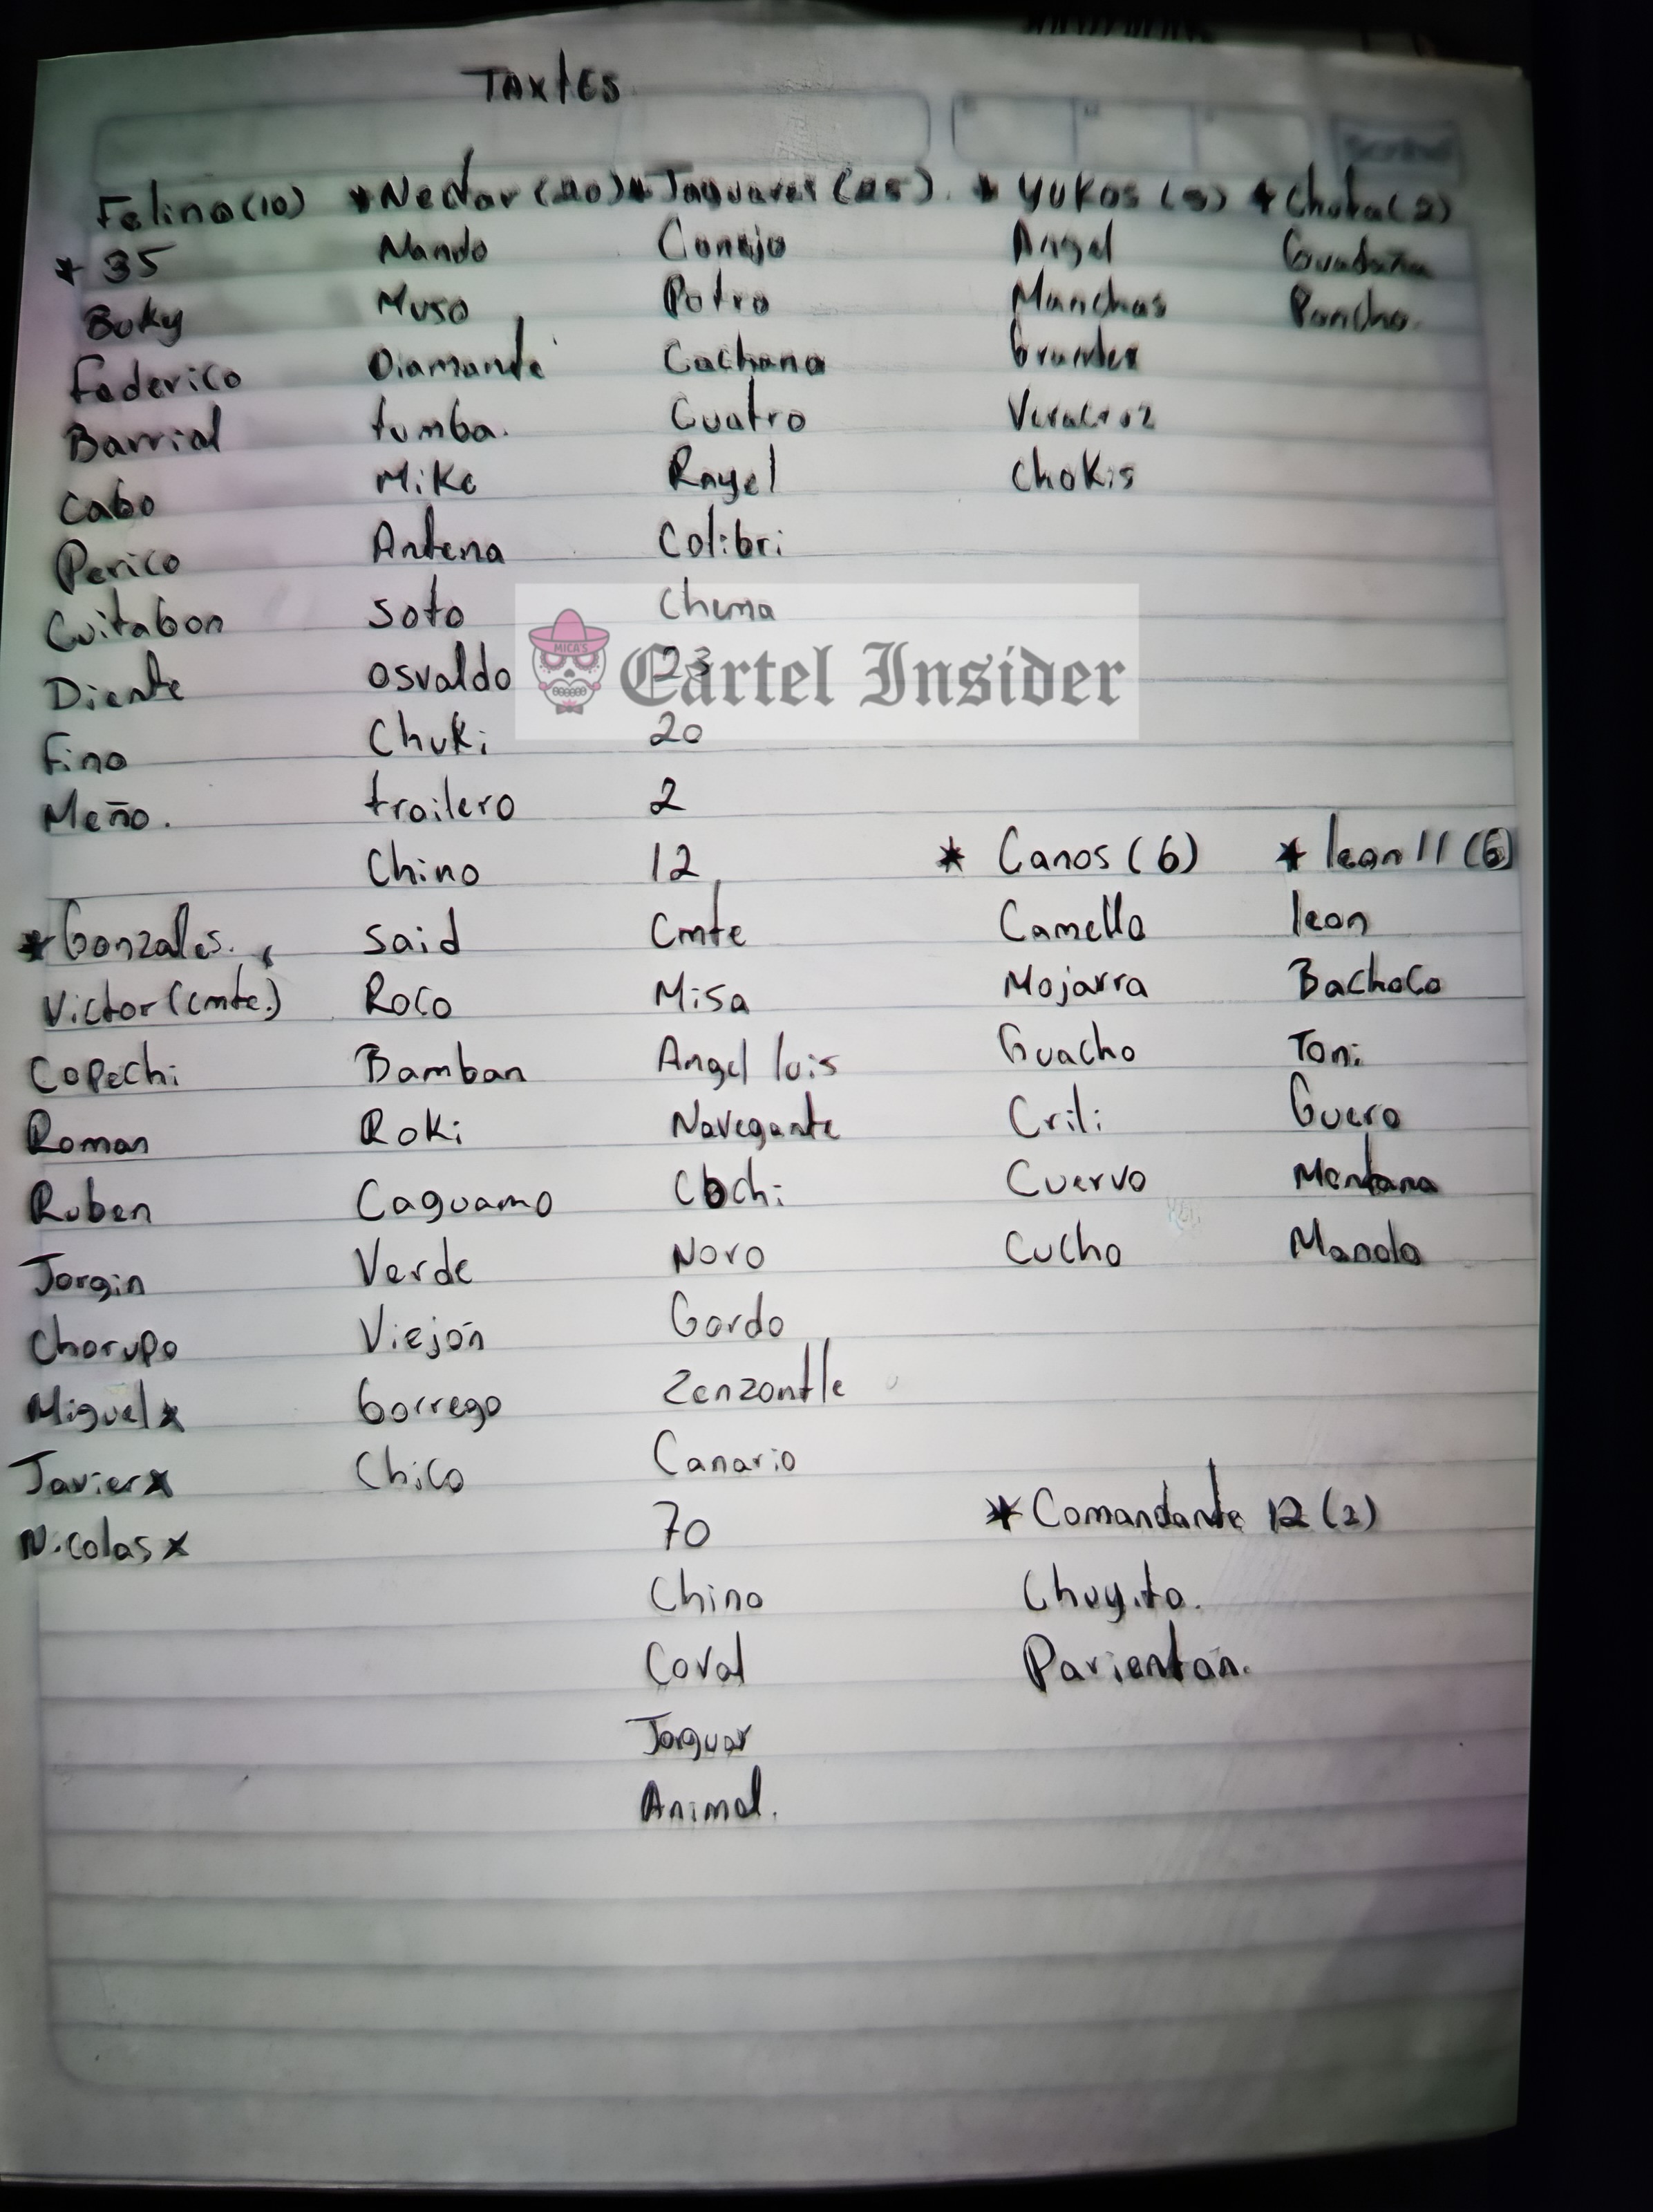 TAXTES
Felino (10)
* 35
Buky
Federico
Barrial
Cabo
Perico
Cuitabon
Diente
Fino
Meño.
* Gonzales.
Victor (cmte.)
Copechi
Roman
Ruben
Jorgin
Chorupo
Miguel x
Javier x
Nicolas x
* Nectar (20)
Nando
Muso
Diamante
tumba.
Mike
Antena
Soto
Osvaldo
Chuki
trailero
Chino
Said
Roco
Bamban
Roki
Caguamo
Verde
Viejón
Borrego
Chico
* Jaguares (25).
Conejo
Potro
Cachana
Cuatro
Rayel
Colibri
Chema
23
20
2
12
Cmte
Misa
Angel luis
Navegante
Cochi
Noro
Gordo
Zenzontle
Canario
70
Chino
Coral
Jaguar
Animal.
* Yukos (5)
Angel
Manchas
Veracruz
Chokis
(2)
Guadaña
Poncho.
* Canos (6)
Camello
Mojarra
Guacho
Crili
Cuervo
Cucho
* leon 11 (6)
leon
Bachoco
Toni
Guero
Montana
Manolo
* Comandante 12 (2)
Chuyito.
Parientón.
MICA'S
Cartel Insider